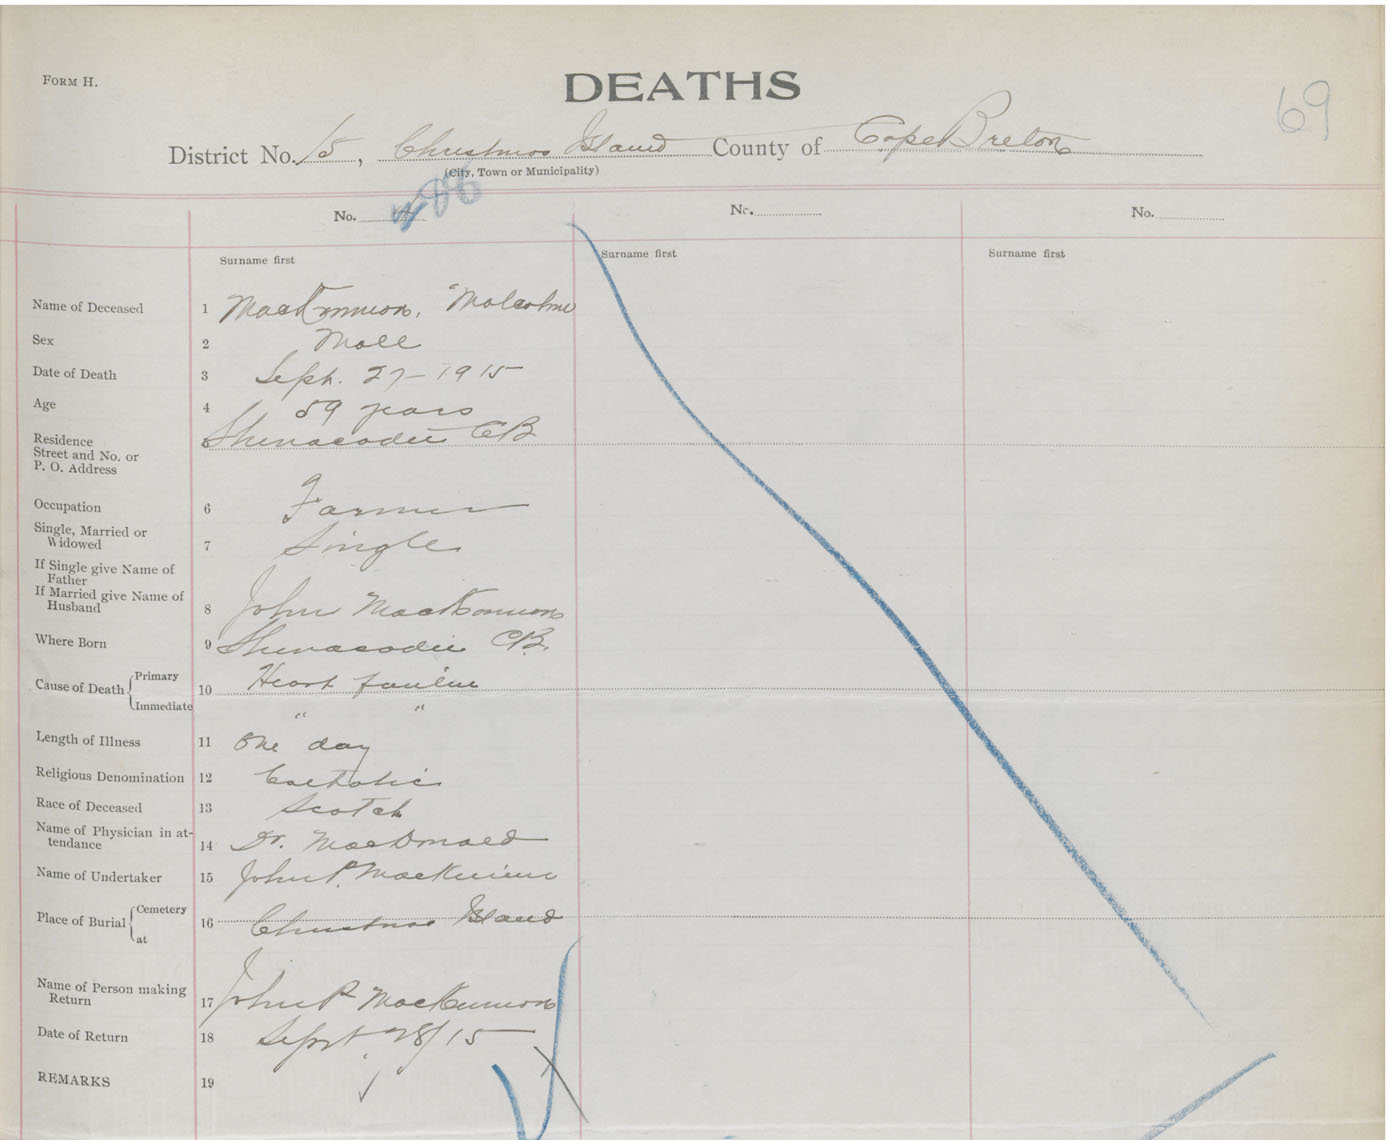 FORM H.
DEATHS
69
District No. 15, Christmas Island County of Cape Breton
(City, Town or Municipality)
No. 486 No. No.
Surname first Surname first Surname first
Name of Deceased 1 MacKinnon, Malcolm
Sex 2 Male
Date of Death 3 Sept. 27-1915
Age 4 59 years
Residence 5 Shenacadie CB
Street and No. or
P. O. Address
Occupation 6 Farmer
Single, Married or
Widowed 7 Single
If Single give Name of
Father
If Married give Name of
Husband 8 John MacKinnon
Where Born 9 Shenacadie CB.
Cause of Death Primary 10 Heart failure
Immediate " "
Length of Illness 11 One day
Religious Denomination 12 Catholic
Race of Deceased 13 Scotch
Name of Physician in at-
tendance 14 Dr. MacDonald
Name of Undertaker 15 John P. MacKinnon
Place of Burial Cemetery 16 Christmas Island
at
Name of Person making
Return 17 John P MacKinnon
Date of Return 18 Sept 28/15
REMARKS 19